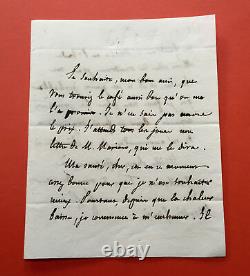 Je souhaite, mon bon ami, que
vous trouviez le café aussi bon qu'on me
l'a promis. Je n'en sais pas encore
le prix. J'attends tous les jours une
lettre de M. Mariani qui me le dira.
Ma santé, cher, en ce moment
assez bonne pour que je n'en souhaite
mieux. Pourtant depuis que la chaleur
baisse, je commence à m'enrhumer. Il